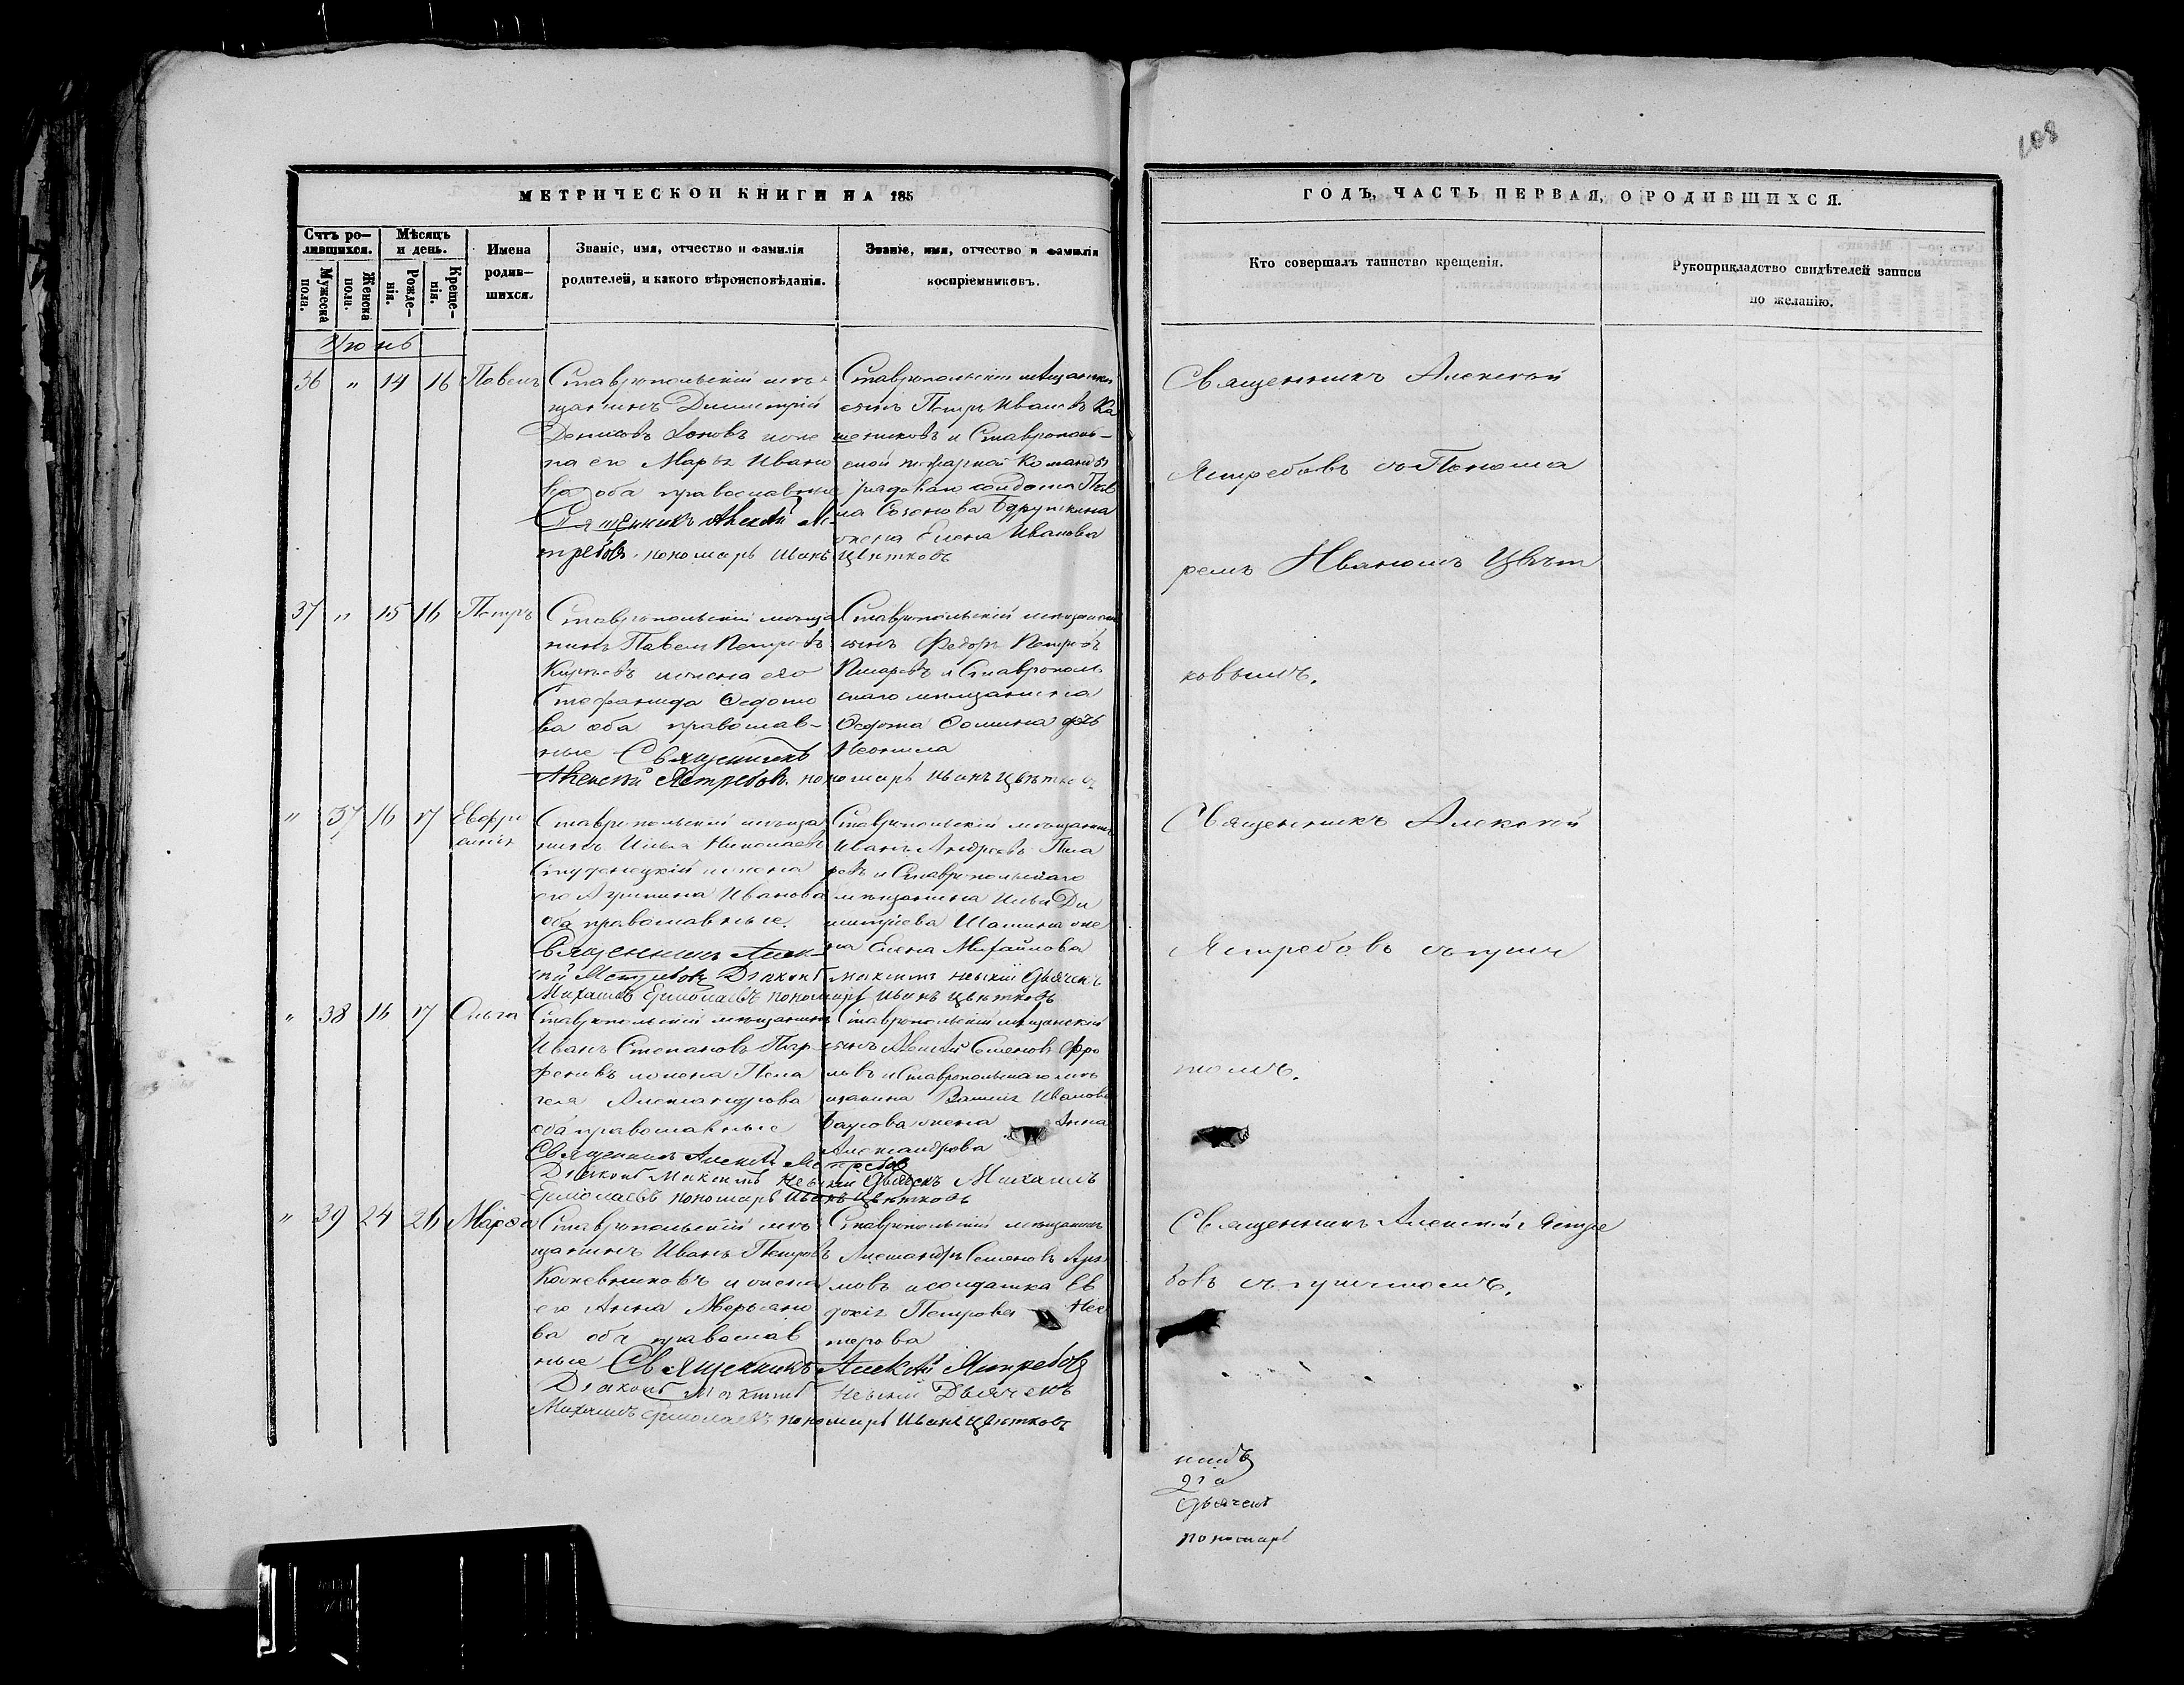 108
МЕТРИЧЕСКОЙ КНИГИ НА 185
ГОДЪ, ЧАСТЬ ПЕРВАЯ, О РОДИВШИХСЯ.
Счтъ ро-
дившихся.
Мѣсяцъ
и день.
Мужеска
пола.
Женска
пола.
Рожде-
нія.
Креще-
нія.
Имена
родив-
шихся.
Званіе, имя, отчество и фамилія
родителей, и какого вѣроисповѣданія.
Званіе, имя, отчество и фамилія
воспріемниковъ.
Кто совершалъ таинство крещенія.
Рукоприкладство свидѣтелей записи
по желанію.
Июнь
36 " 14 16 Павелъ
Ставропольскій мѣ-
щанинъ Димитрій
Денисовъ
на его Марѳа Ивано
ва оба православные
Священникъ Алексѣй Яс-
требовъ. пономарь Иванъ Цвѣтковъ
Ставропольскій мѣщанскій
сынъ Петръ Ивановъ Ка
шениковъ и Ставрополь-
ской пожарной команды
рядоваго солдата Пав
ла
жена Елена Иванова
Священникъ Алексѣй
Ястребовъ съ Понома
ремъ Иваномъ Цвѣт
ковымъ.
37 " 15 16 Петръ
Ставропольскій мѣща
нинъ Павелъ Петровъ
и жена его
Стефанида Ѳедото
ва оба православ-
ные Священникъ
Алексѣй Ястребовъ. пономарь Иванъ Цвѣтковъ
Ставропольскій мѣщанскій
сынъ Федоръ Петровъ
Писаревъ и Ставрополь
скаго мѣщанина
Ѳедота Ѳомина дочь
Неонила
" 37 16 17 Евфро
синія
Ставропольскій мѣща
нинъ Илья Николаевъ
Студенецкій и жена
его Агрипина Иванова
оба православные.
Священникъ Алек-
сѣй Ястребовъ Діаконъ Максимъ Невскій Дьячекъ
Михаилъ Ермолаевъ пономарь Иванъ Цвѣтковъ
Ставропольскій мѣщанинъ
Иванъ Андреевъ Писа
ревъ и Ставропольскаго
мѣщанина Ильи Ди
митріева Шашина же
на Елена Михайлова
Священникъ Алексѣй
Ястребовъ съ прич
томъ.
" 38 16 17 Ольга
Ставропольскій мѣщанинъ
Иванъ Степановъ Пар-
феновъ и жена Пела
гея Александрова
оба православные
Священникъ Алексѣй Ястребовъ
Діаконъ Максимъ Невскій Дьячекъ Михаилъ
Ермолаевъ пономарь Иванъ Цвѣтковъ
Ставропольскій мѣщанскій
сынъ Алексѣй Семеновъ Фро
ловъ и Ставропольскаго мѣ
щанина Василія Иванова
Баусова жена Анна
Александрова
" 39 24 26 Марѳа
Ставропольскій мѣ
щанинъ Иванъ Петровъ
Кожевниковъ и жена
его Анна Аверьяно
ва оба православ
ные Священникъ Алексѣй Ястребовъ
Діаконъ Максимъ Невскій Дьячекъ
Михаилъ Ермолаевъ пономарь Иванъ Цвѣтковъ
Ставропольскій мѣщанинъ
Александръ Семеновъ
и солдатка Ев
докія Петрова Нес
терова
Священникъ Алексѣй Ястре
бовъ съ причтомъ.
Дьячекъ
пономарь